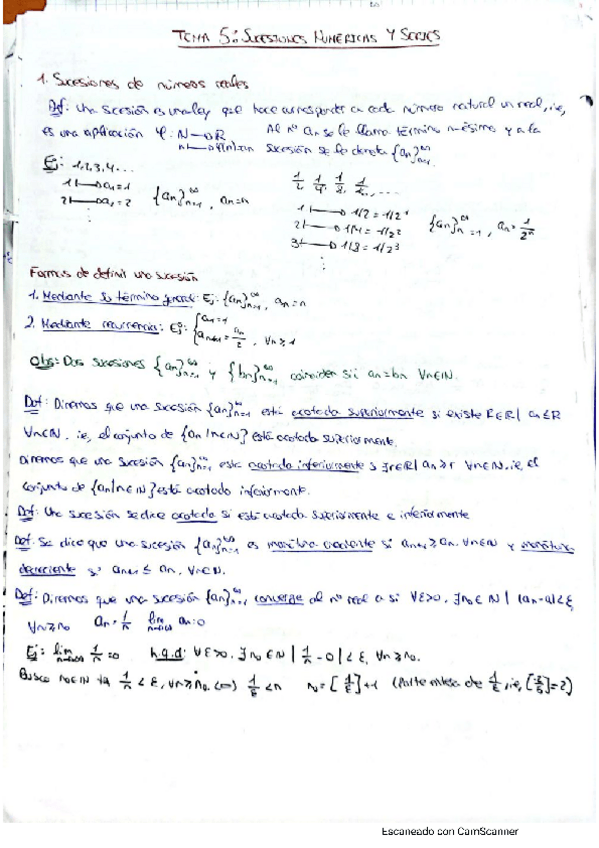 TEMA 5: SUCESIONES NUMÉRICAS Y SERIES
1. Sucesiones de números reales
Def: Una sucesión es una ley que hace corresponder a cada número natural un real, ie,
es una aplicación φ: N→R Al nº an se le llama término n-ésimo y a la
n→φ(n)=an sucesión se le denota {an}∞n=1
Ej: 1,2,3,4...
1/2, 1/4, 1/2, ...
1→a1=1
2→a2=2 {an}∞n=1, an=n
1→1/2=1/2^1
2→1/4=1/2^2 {an}∞n=1, an=1/2^n
3→1/8=1/2^3
Formas de definir una sucesión
1. Mediante su término general: Ej: {an}∞n=1, an=n
2. Mediante recurrencia: Ej: {a1=1
an+1=an/2, ∀n≥1
Obs: Dos sucesiones {an}∞n=1 y {bn}∞n=1 coinciden sii an=bn ∀n∈N.
Def: Diremos que una sucesión {an}∞n=1 está acotada superiormente si existe R∈R| an≤R
∀n∈N. ie, el conjunto de {an|n∈N} está acotado superiormente.
Diremos que una sucesión {an}∞n=1 está acotada inferiormente si ∃r∈R| an≥r ∀n∈N. ie, el
conjunto de {an|n∈N} está acotado inferiormente.
Def: Una sucesión se dice acotada si está acotada superiormente e inferiormente
Def: Se dice que una sucesión {an}∞n=1 es monótona creciente si an+1≥an. ∀n∈N y monótona
decreciente si an+1≤an, ∀n∈N.
Def: Diremos que una sucesión {an}∞n=1 converge al nº real a si ∀ε>0, ∃n0∈N | |an-a|<ε,
∀n≥n0 an=1/n lim n→∞ an=0
Ej: lim n→∞ 1/n=0 h.q.d: ∀ε>0. ∃n0∈N | |1/n-0|<ε, ∀n≥n0.
Busco n0∈N tq 1/n<ε, ∀n≥n0. <=> 1/ε<n n0=[1/ε]+1 (Parte entera de 1/ε, ie,
Escaneado con CamScanner